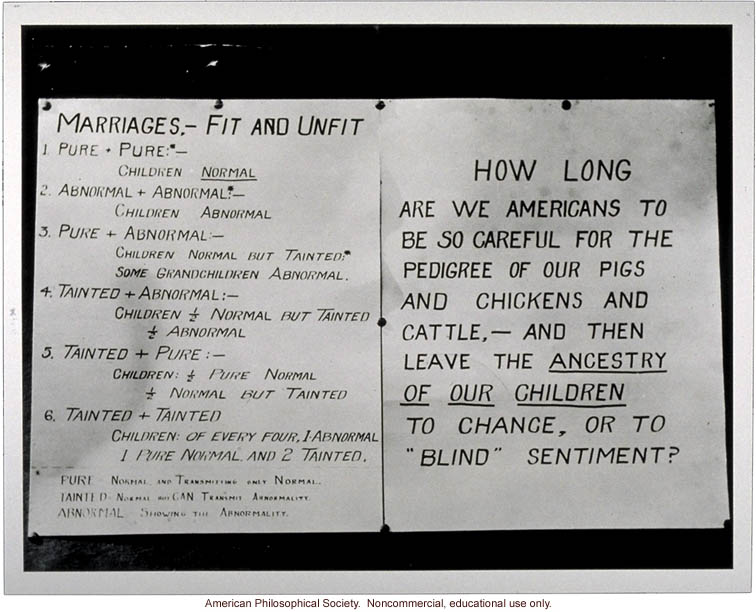 MARRIAGES,- FIT AND UNFIT
1. PURE + PURE:*-
CHILDREN NORMAL
2. ABNORMAL + ABNORMAL:*-
CHILDREN ABNORMAL
3. PURE + ABNORMAL:-
CHILDREN NORMAL BUT TAINTED:*
SOME GRANDCHILDREN ABNORMAL.
4. TAINTED + ABNORMAL:-
CHILDREN ½ NORMAL BUT TAINTED
½ ABNORMAL
5. TAINTED + PURE :-
CHILDREN: ½ PURE NORMAL
½ NORMAL BUT TAINTED
6. TAINTED + TAINTED
CHILDREN: OF EVERY FOUR, 1 ABNORMAL
1 PURE NORMAL. AND 2 TAINTED.
* PURE - NORMAL AND TRANSMITTING ONLY NORMAL.
TAINTED- NORMAL BUT CAN TRANSMIT ABNORMALITY.
ABNORMAL - SHOWING THE ABNORMALITY.
HOW LONG
ARE WE AMERICANS TO
BE SO CAREFUL FOR THE
PEDIGREE OF OUR PIGS
AND CHICKENS AND
CATTLE,- AND THEN
LEAVE THE ANCESTRY
OF OUR CHILDREN
TO CHANCE, OR TO
"BLIND" SENTIMENT?
American Philosophical Society. Noncommercial, educational use only.